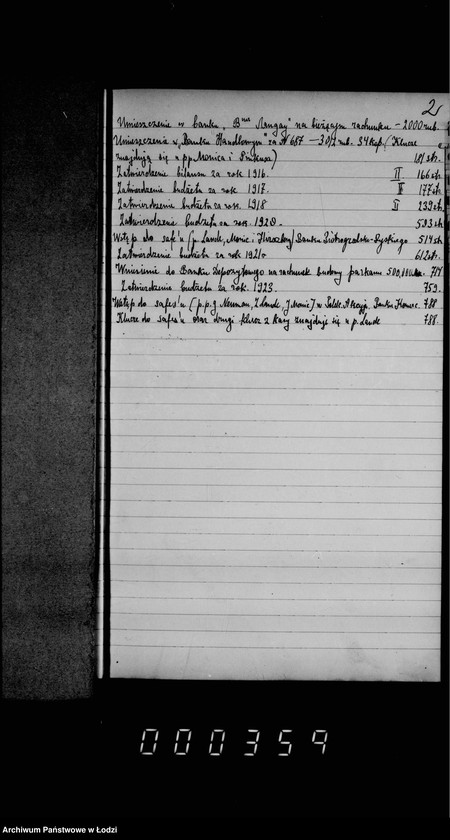 2
Umieszczenie w banku „B-cia Landau" na bieżącym rachunku – 2000 rub.
Umieszczenie w „Banku Handlowym" za N 657 – rub. 34 kop. (Klucze
znajdują się u p.p. Monica i Pinkusa) 181 str.
Zatwierdzenie bilansu za rok 1916. II 166 str.
Zatwierdzenie budżetu za rok 1917. II 177 str.
Zatwierdzenie budżetu za rok 1918 II 239 str.
Zatwierdzenie budżetu za rok 1920. 593 str.
Wstęp do safe'u (p. Lande, Monic i) Banku 514 str.
Zatwierdzenie budżetu za rok 1921 612 str.
Wniesienie do Banku Depozytowego na rachunek budowy parkanu 500,000 mk. – 717.
Zatwierdzenie budżetu za rok 1923. 759.
Wstęp do safes'u (p.p. J. Neuman, Z. Lande, J. Monic) w Polsk. Akcyj. Banku Komerc. 788
Klucz do safes'u oraz drugi klucz z kasy znajduje się u p. Lande 788.
000359
Archiwum Państwowe w Łodzi